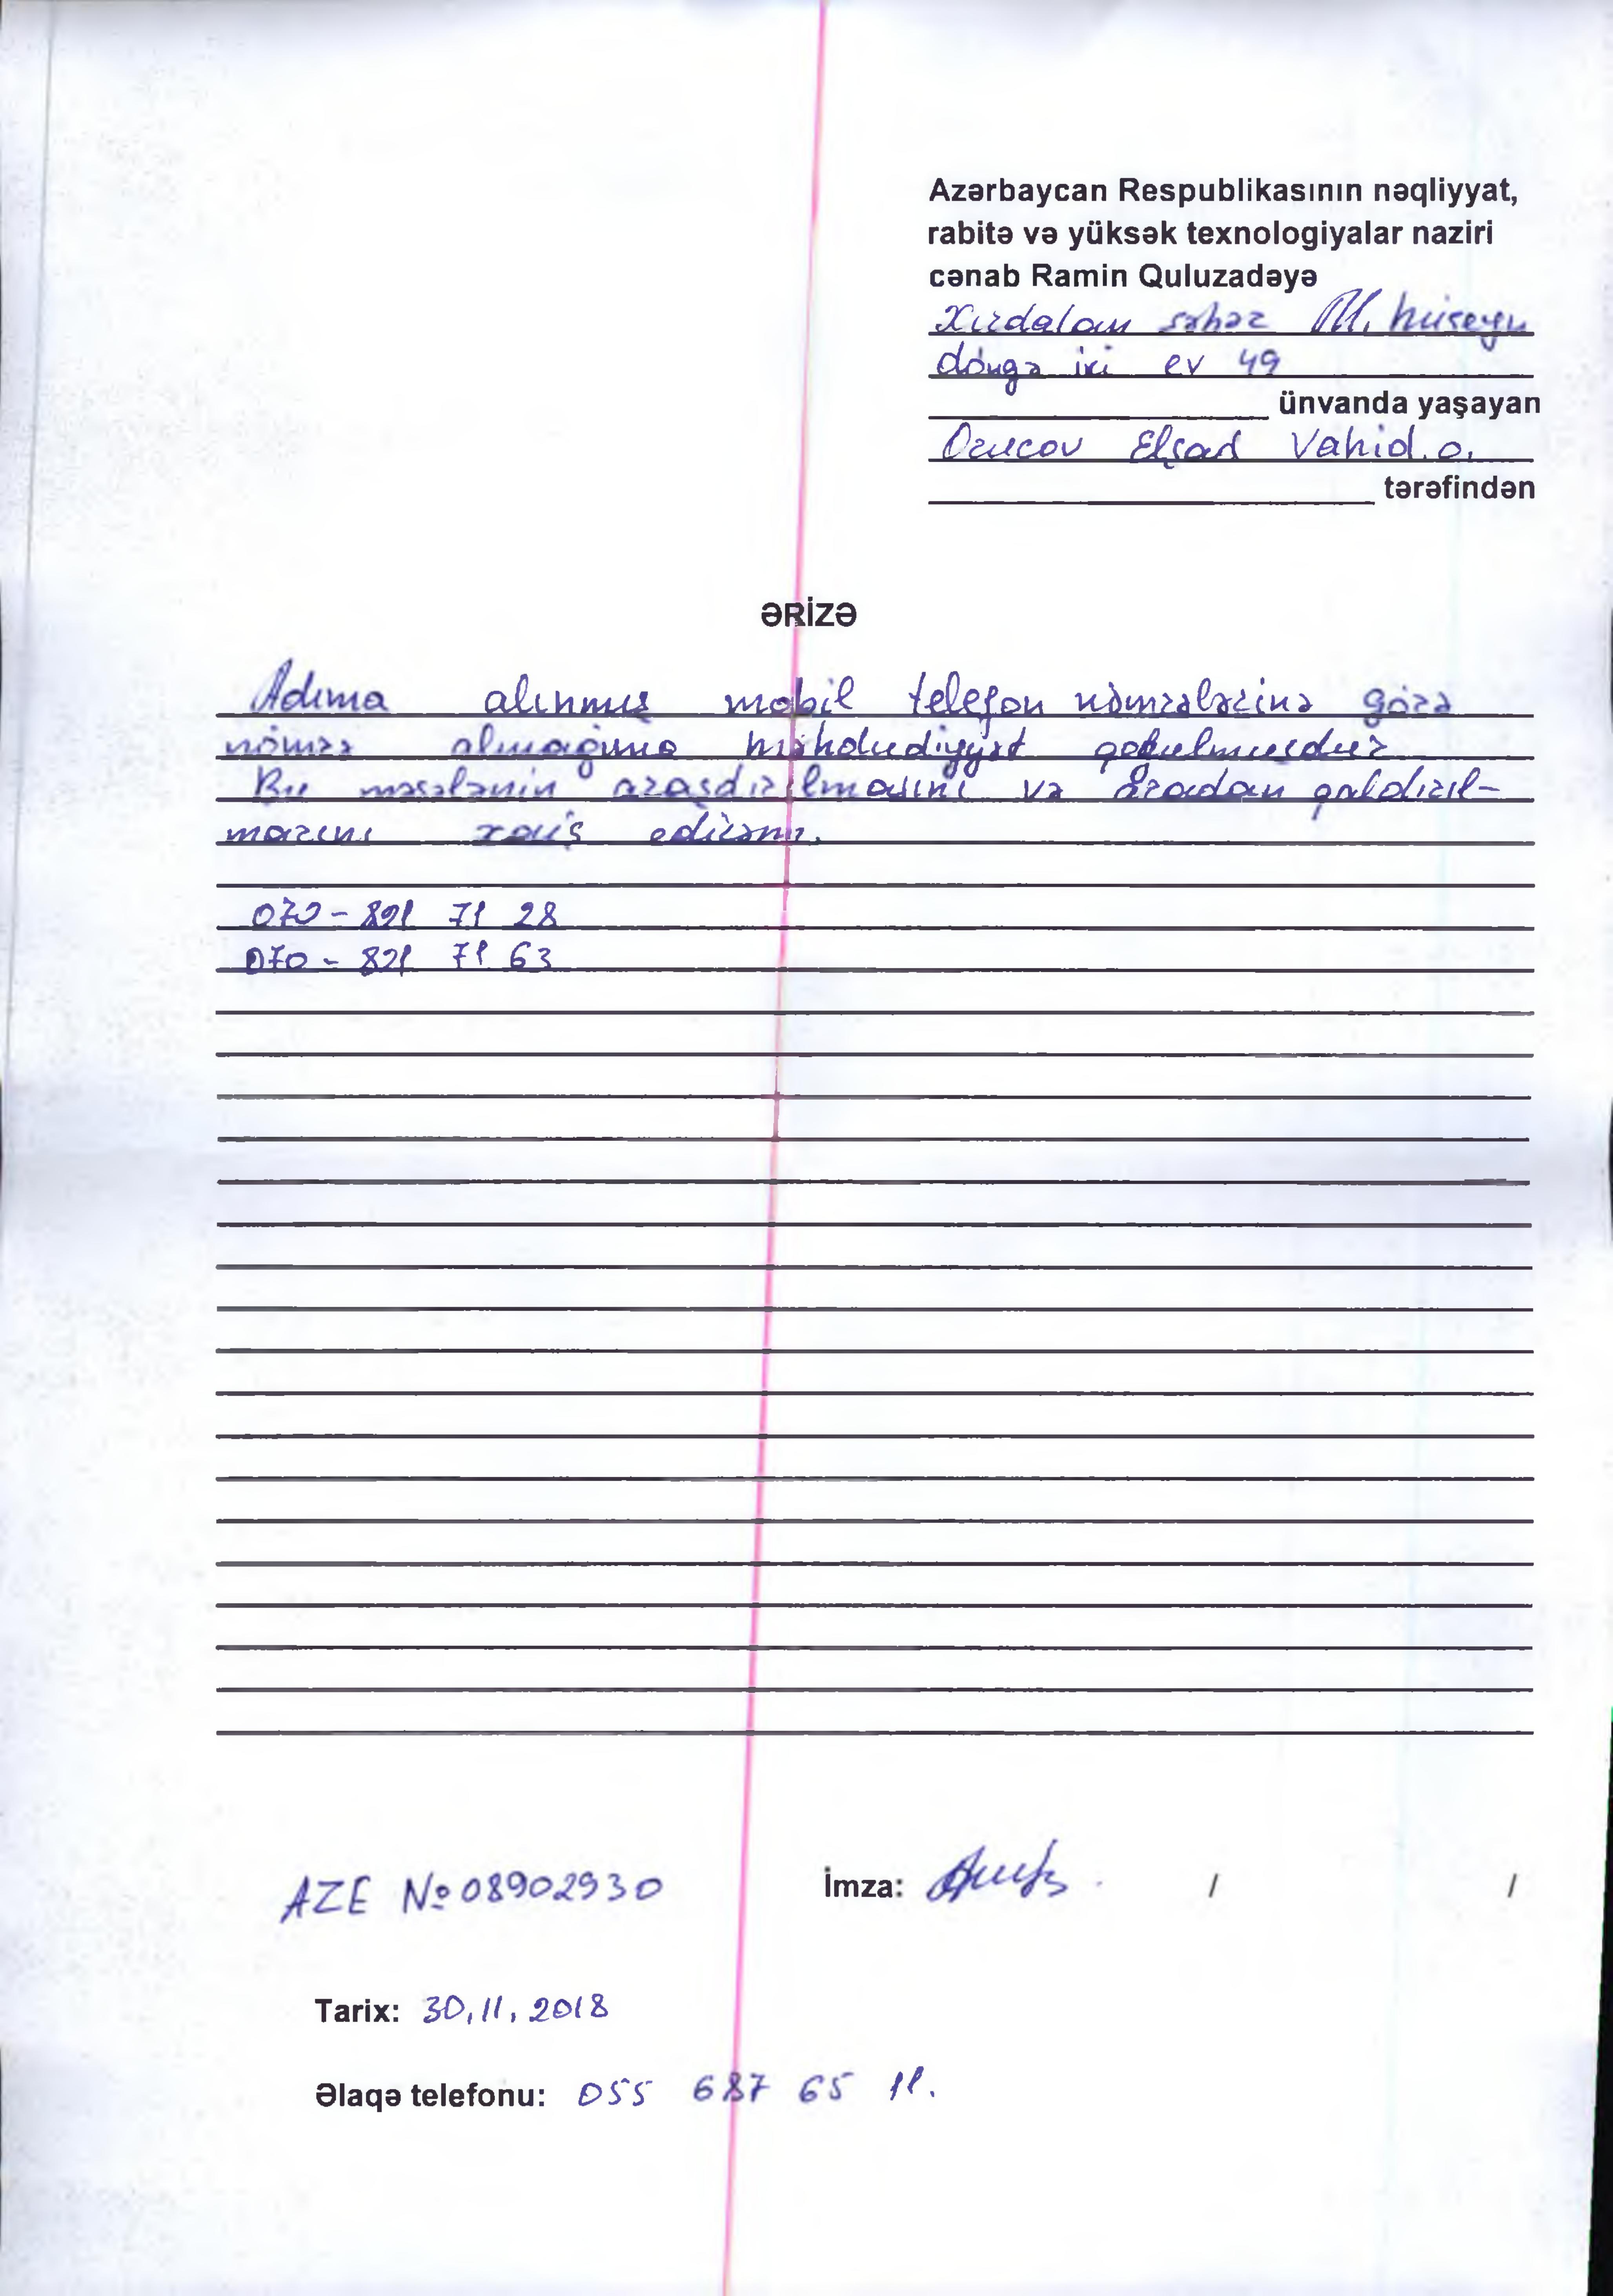 Azərbaycan Respublikasının nəqliyyat,
rabitə və yüksək texnologiyalar naziri
cənab Ramin Quluzadəyə
Xırdalan şəhər M. hüseyn
döngə iki ev 49
ünvanda yaşayan
Orucov Elşad Vahid.o.
tərəfindən
ƏRİZƏ
Adıma alınmış mobil telefon nömrələrinə görə
nömrə almağıma məhdudiyyət qoyulmuşdur
Bu məsələnin araşdırılmasını və aradan qaldırıl-
masını xaiş edirəm.
070 - 821 71 28
070 - 821 71 63
AZE № 08902930
İmza: / /
Tarix: 30.11.2018
Əlaqə telefonu: 055 687 65 11.